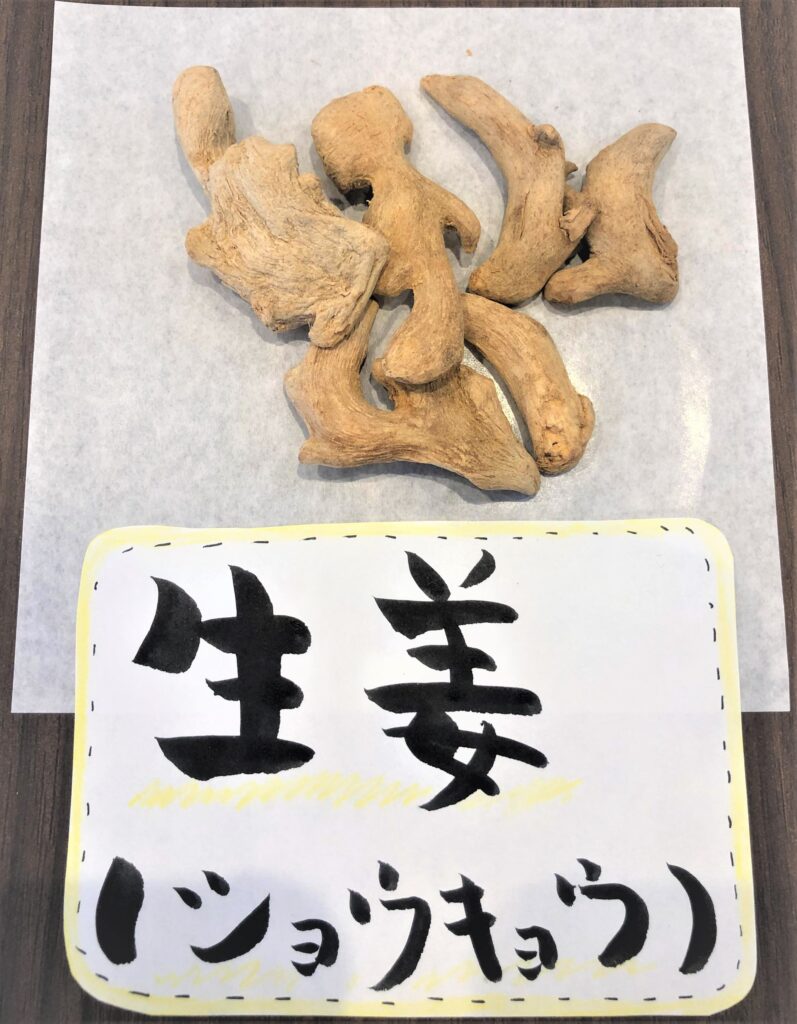 生姜
(ショウキョウ)